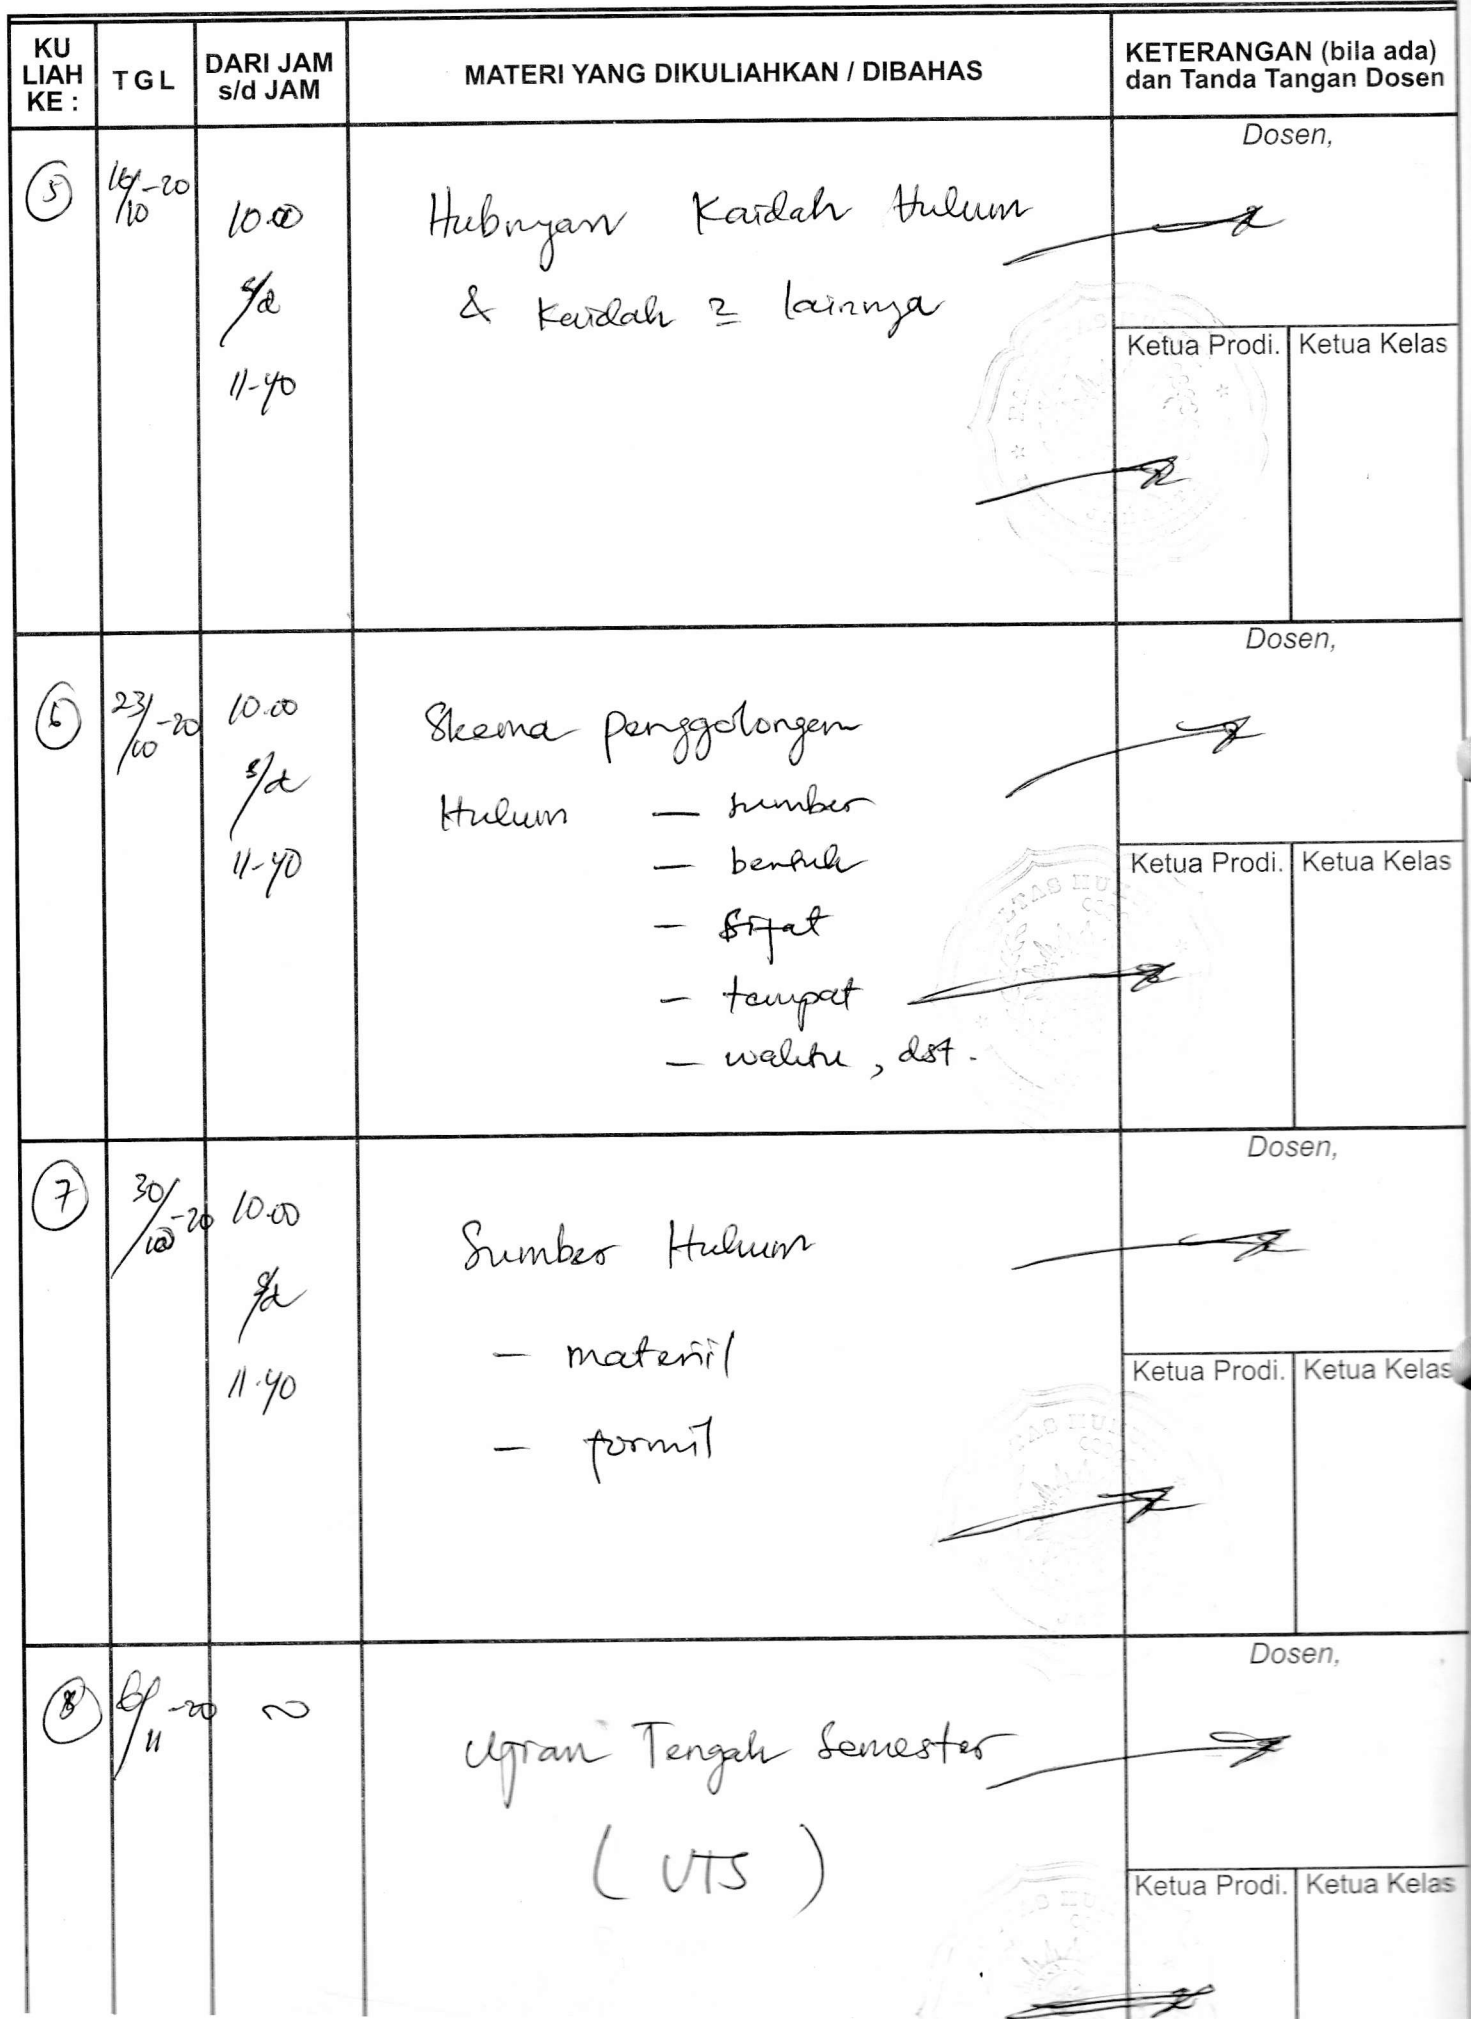 KU
LIAH
KE :
TGL
DARI JAM
s/d JAM
MATERI YANG DIKULIAHKAN / DIBAHAS
KETERANGAN (bila ada)
dan Tanda Tangan Dosen
5
16/10-20
10.00
s/d
11-40
Hubungan Kaidah Hukum
& Kaidah 2 lainnya
Dosen,
Ketua Prodi. Ketua Kelas
6
23/10-20
10.00
s/d
11-40
Skema penggolongan
Hukum — sumber
— bentuk
— sifat
— tempat
— waktu, dst.
Dosen,
Ketua Prodi. Ketua Kelas
7
30/10-20
10.00
s/d
11.40
Sumber Hukum
— materiil
— formil
Dosen,
Ketua Prodi. Ketua Kelas
8
6/11-20
~
Ujian Tengah Semester
(UTS)
Dosen,
Ketua Prodi. Ketua Kelas